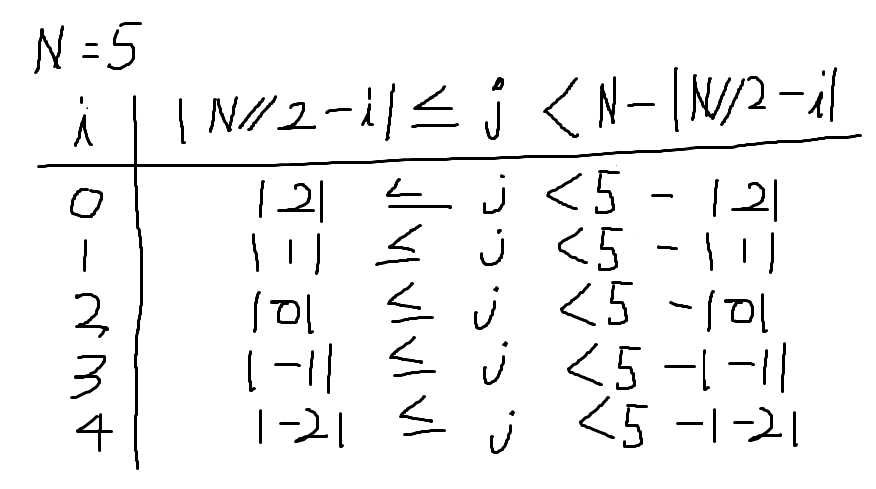 N=5
i | |N//2-i| ≤ j < N-|N//2-i|
0 | |2| ≤ j <5 - |2|
1 | |1| ≤ j <5 - |1|
2 | |0| ≤ j <5 -|0|
3 | |-1| ≤ j <5 -|-1|
4 | |-2| ≤ j <5 -|-2|